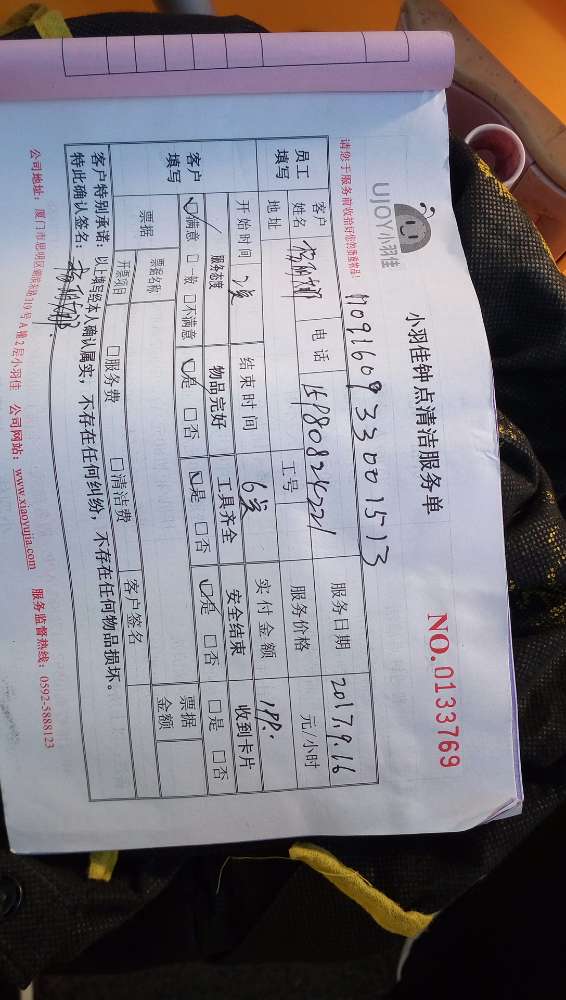 UJOY小羽佳
小羽佳钟点清洁服务单
NO.0133769
请您于服务前收拾好您的贵重物品!
1709160933001513
员工填写 客户姓名 电话 服务日期 2017.9.16
地址 工号 服务价格 元/小时
开始时间 2点 结束时间 6点 实付金额
客户填写 服务态度 物品完好 工具齐全 安全结束 收到卡片
□满意 □一般 □不满意 □是 □否 □是 □否 □是 □否 □是 □否
票据 票据名称 客户签名 票据金额
开票项目 □服务费 □清洁费
客户特别承诺:以上填写经本人确认属实,不存在任何纠纷,不存在任何物品损坏。
特此确认签名:
公司地址:厦门市思明区湖滨东路319号A幢2层小羽佳 公司网站:www.xiaoyujia.com 服务监督热线:0592-5888123